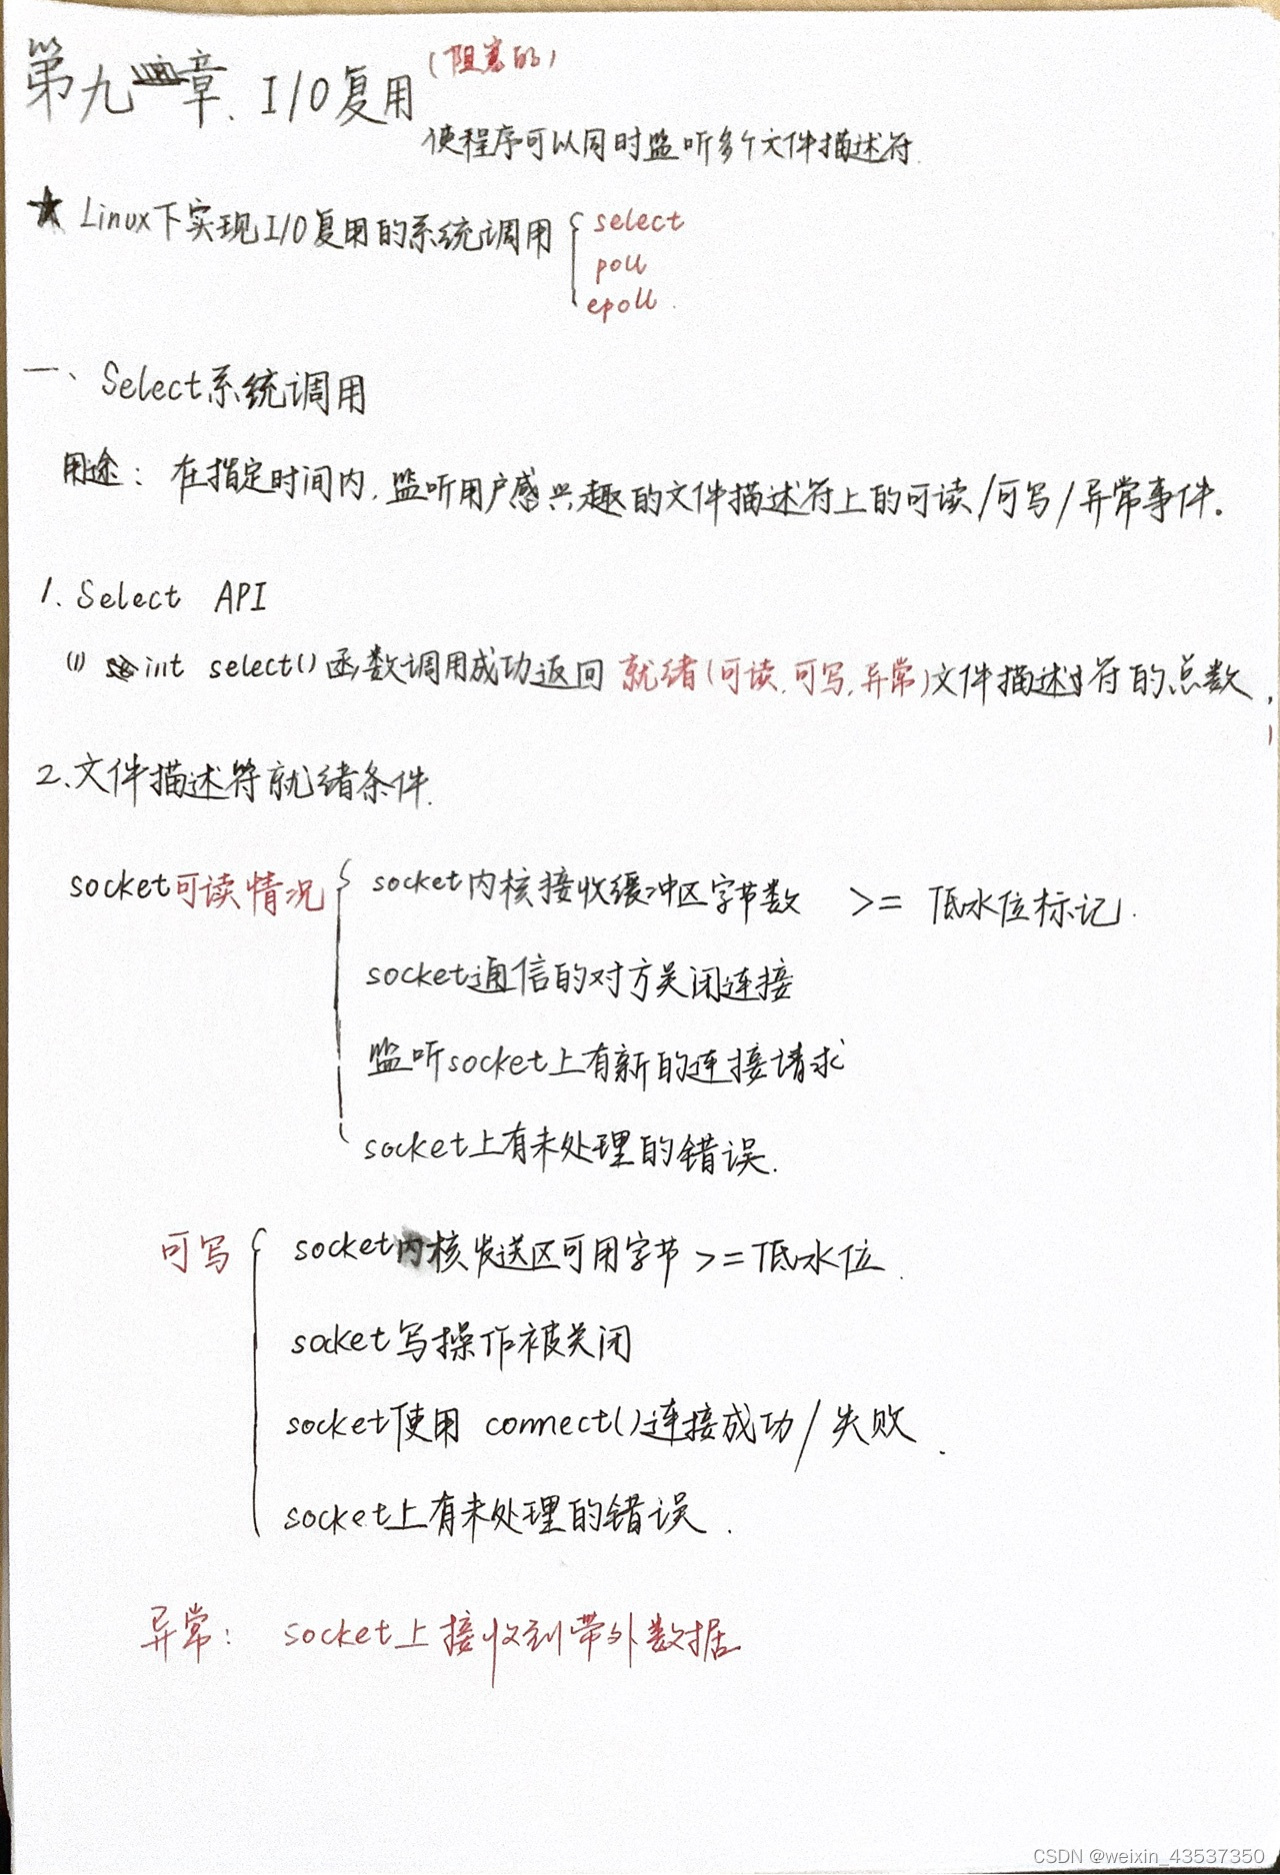 第九章、I/O复用 (阻塞的)
使程序可以同时监听多个文件描述符.
★ Linux下实现I/O复用的系统调用 { select
poll
epoll.
一、Select系统调用
用途：在指定时间内,监听用户感兴趣的文件描述符上的可读/可写/异常事件。
1. Select API
(1) int select()函数调用成功返回 就绪(可读,可写,异常)文件描述符的总数,
2、文件描述符就绪条件.
socket可读情况 { socket内核接收缓冲区字节数 >= 低水位标记.
socket通信的对方关闭连接
监听socket上有新的连接请求
socket上有未处理的错误.
可写 { socket内核发送区可用字节 >= 低水位.
socket写操作被关闭
socket使用 connect()连接成功/失败.
socket上有未处理的错误.
异常: socket上接收到带外数据
CSDN @weixin_43537350